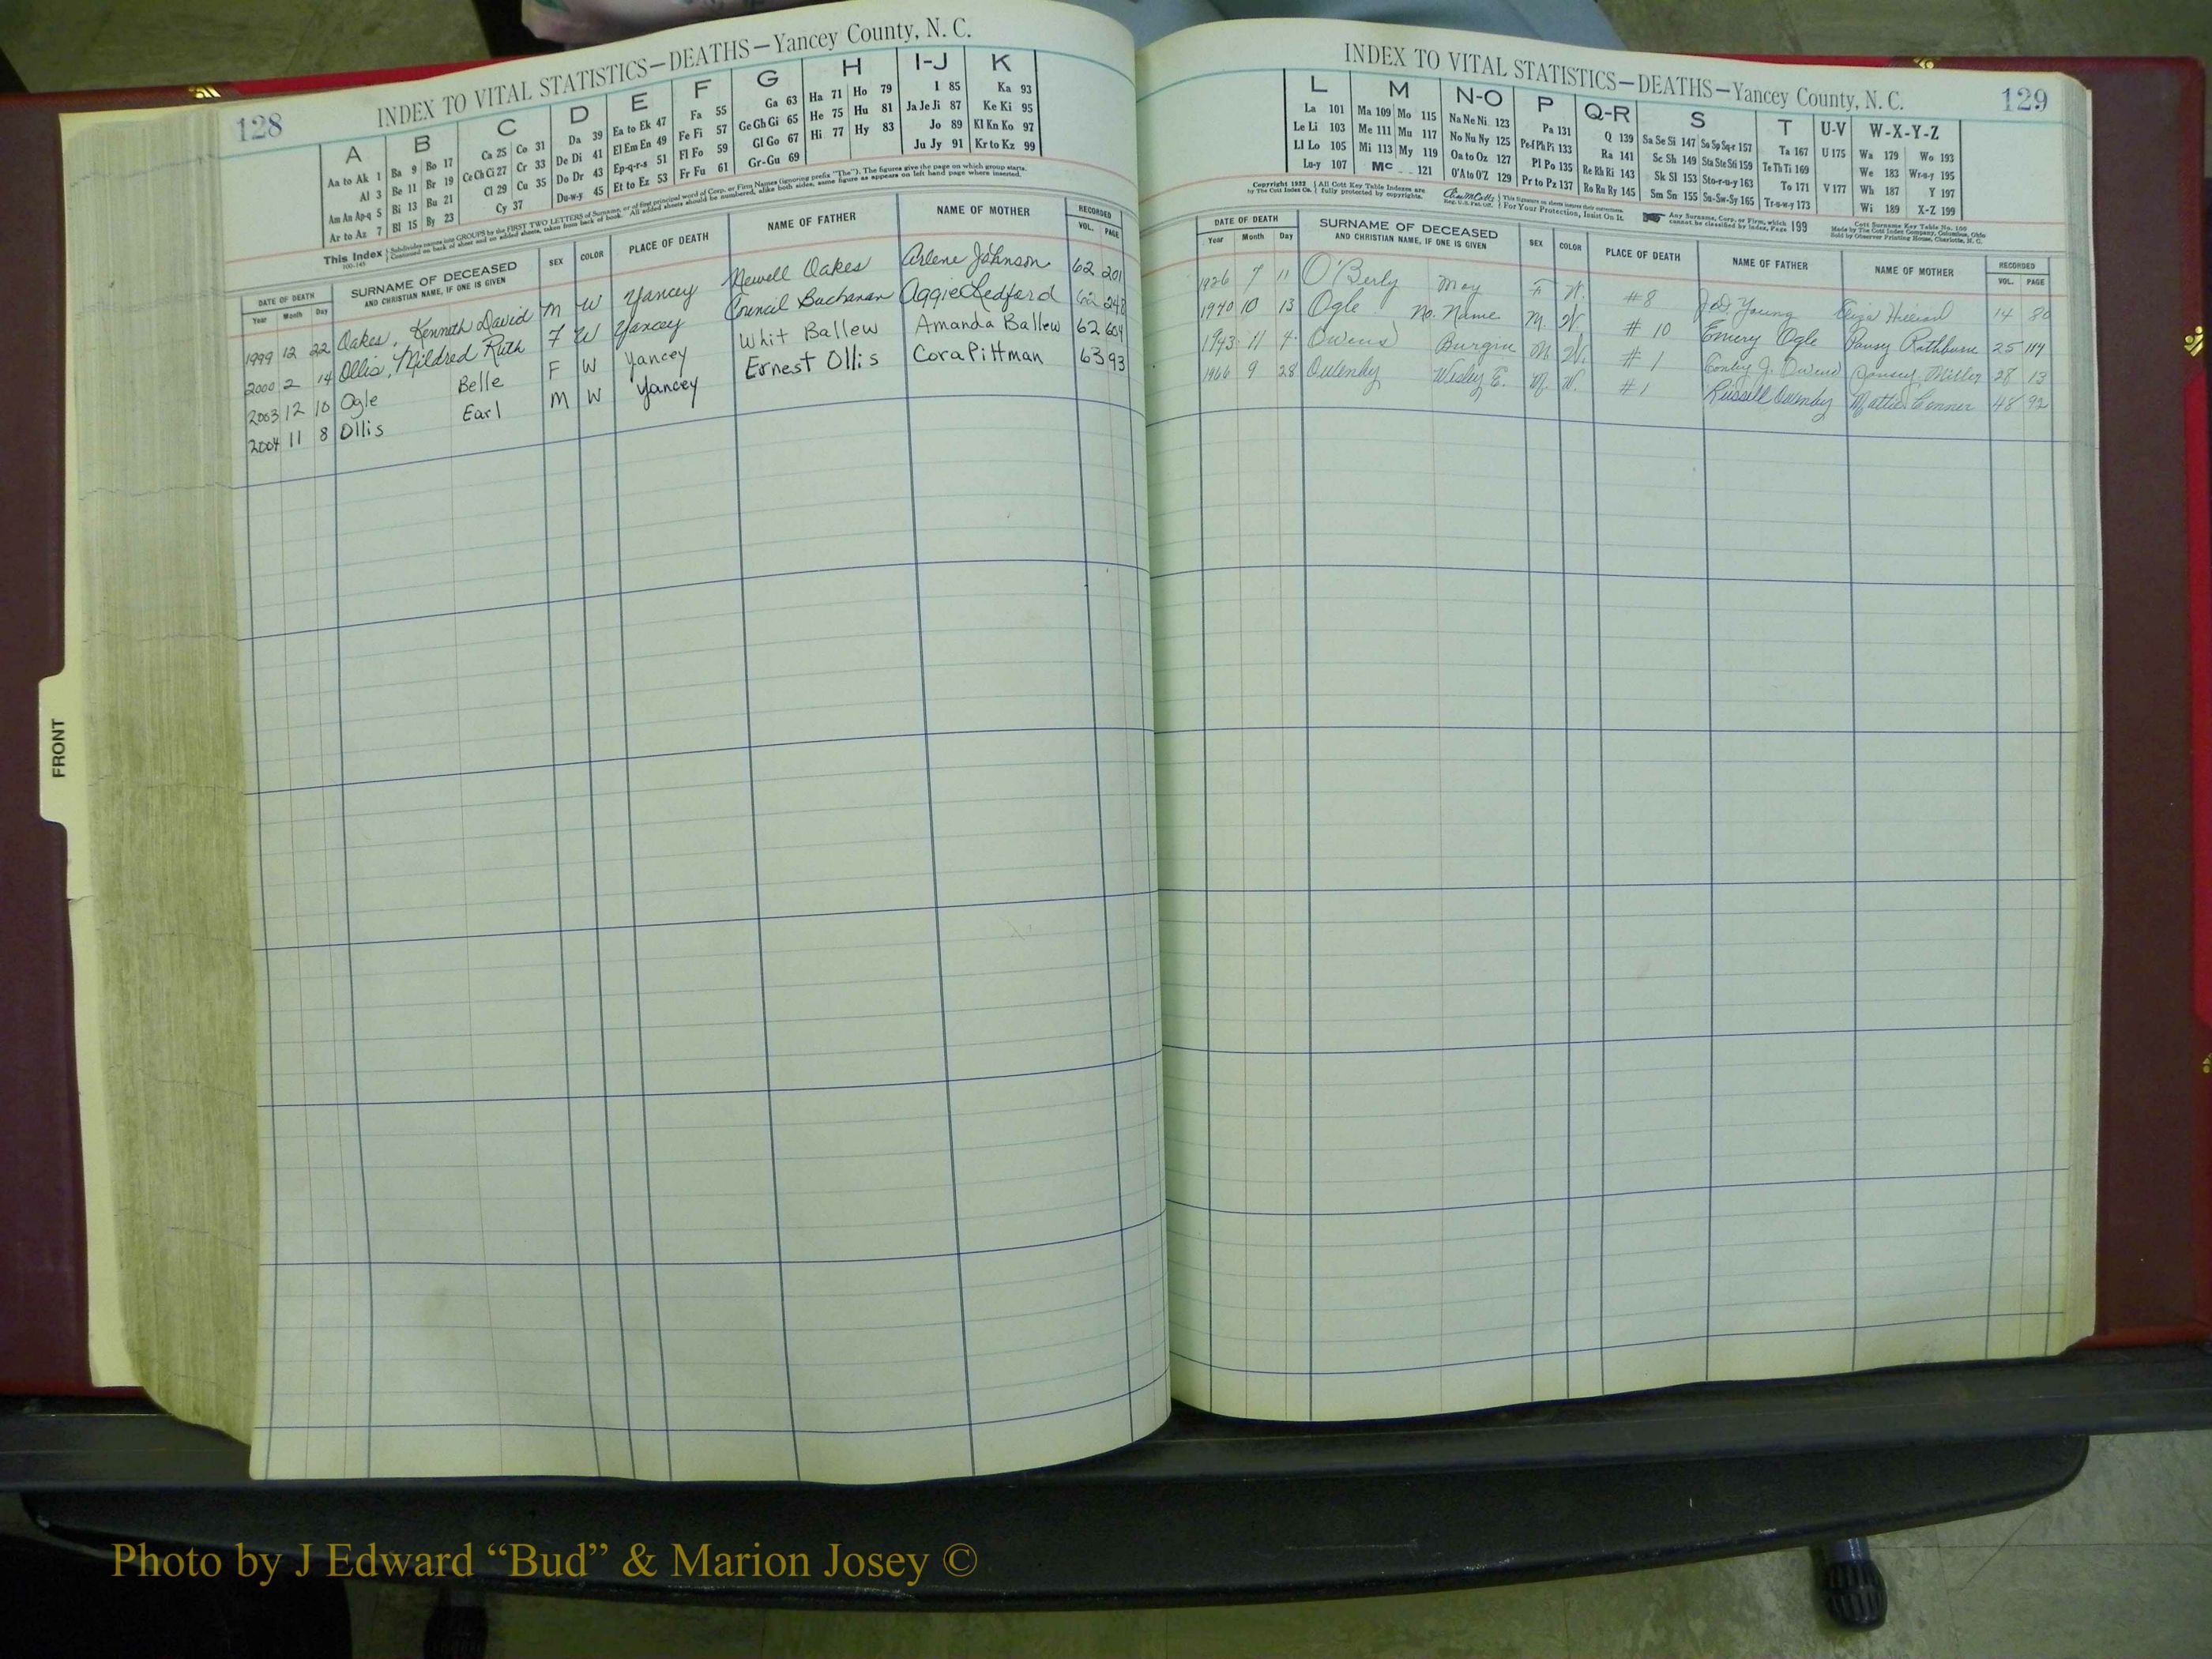 128
INDEX TO VITAL STATISTICS—DEATHS—Yancey County, N. C.
A B C D E F G H I-J K
Aa to Ak 1 Ba 9 Bo 17 Ca 25 Co 31 Da 39 Ea to Ek 47 Fa 55 Ga 63 Ha 71 Ho 79 I 85 Ka 93
Al 3 Be 11 Br 19 Ce Ch Ci 27 Cr 33 De Di 41 El Em En 49 Fe Fi 57 Ge Gh Gi 65 He 75 Hu 81 Ja Je Ji 87 Ke Ki 95
Am An Ap-q 5 Bi 13 Bu 21 Cl 29 Cu 35 Do Dr 43 Ep-q-r-s 51 Fl Fo 59 Gl Go 67 Hi 77 Hy 83 Jo 89 Kl Kn Ko 97
Ar to Az 7 Bl 15 By 23 Cy 37 Du-w-y 45 Et to Ez 53 Fr Fu 61 Gr-Gu 69 Ju Jy 91 Kr to Kz 99
This Index Subdivides names into GROUPS by the FIRST TWO LETTERS of Surname, or of first principal word of Corp. or Firm Names (ignoring prefix "The"). The figures give the page on which group starts.
Continued on back of sheet and on added sheets, taken from back of book. All added sheets should be numbered, alike both sides, same figure as appears on left hand page where inserted.
DATE OF DEATH SURNAME OF DECEASED SEX COLOR PLACE OF DEATH NAME OF FATHER NAME OF MOTHER RECORDED
Year Month Day AND CHRISTIAN NAME, IF ONE IS GIVEN VOL. PAGE
1999 12 22 Oakes, Kenneth David M W Yancey Newell Oakes Arlene Johnson 62 201
2000 2 14 Ollis, Mildred Ruth F W Yancey Council Buchanan Aggie Ledford 62 248
2003 12 10 Ogle Belle F W Yancey Whit Ballew Amanda Ballew 62 604
2004 11 8 Ollis Earl M W Yancey Ernest Ollis Cora Pittman 63 93
FRONT
INDEX TO VITAL STATISTICS—DEATHS—Yancey County, N. C.
129
L M N-O P Q-R S T U-V W-X-Y-Z
La 101 Ma 109 Mo 115 Na Ne Ni 123 Pa 131 Q 139 Sa Se Si 147 So Sp Sq-r 157 Ta 167 U 175 Wa 179 Wo 193
Le Li 103 Me 111 Mu 117 No Nu Ny 125 Pe-f Ph Pi 133 Ra 141 Sc Sh 149 Sta Ste Sti 159 Te Th Ti 169 We 183 Wr-u-y 195
Ll Lo 105 Mi 113 My 119 Oa to Oz 127 Pl Po 135 Re Rh Ri 143 Sk Sl 153 Sto-r-u-y 163 To 171 V 177 Wh 187 Y 197
Lu-y 107 Mc 121 O'A to O'Z 129 Pr to Pz 137 Ro Ru Ry 145 Sm Sn 155 Su-Sw-Sy 165 Tr-u-w-y 173 Wi 189 X-Z 199
Copyright 1932 by The Cott Index Co. All Cott Key Table Indexes are fully protected by copyrights. This Signature on sheets insures their correctness. For Your Protection, Insist On It. Any Surname, Corp. or Firm, which cannot be classified by Index, Page 199
DATE OF DEATH SURNAME OF DECEASED SEX COLOR PLACE OF DEATH NAME OF FATHER NAME OF MOTHER RECORDED
Year Month Day AND CHRISTIAN NAME, IF ONE IS GIVEN VOL. PAGE
1926 7 11 O'Berly May F W. #8 J.D. Young Eliza 14 80
1940 10 13 Ogle No. Name M. W. #10 Emery Ogle Pansy Rathbone 25 114
1943 11 4 Owens Burgin M. W. #1 J. Owens Miller 28 13
1966 9 28 Owenby Wesley E. M. W. #1 Russell Owenby Mattie Conner 48 92
Photo by J Edward “Bud” & Marion Josey ©